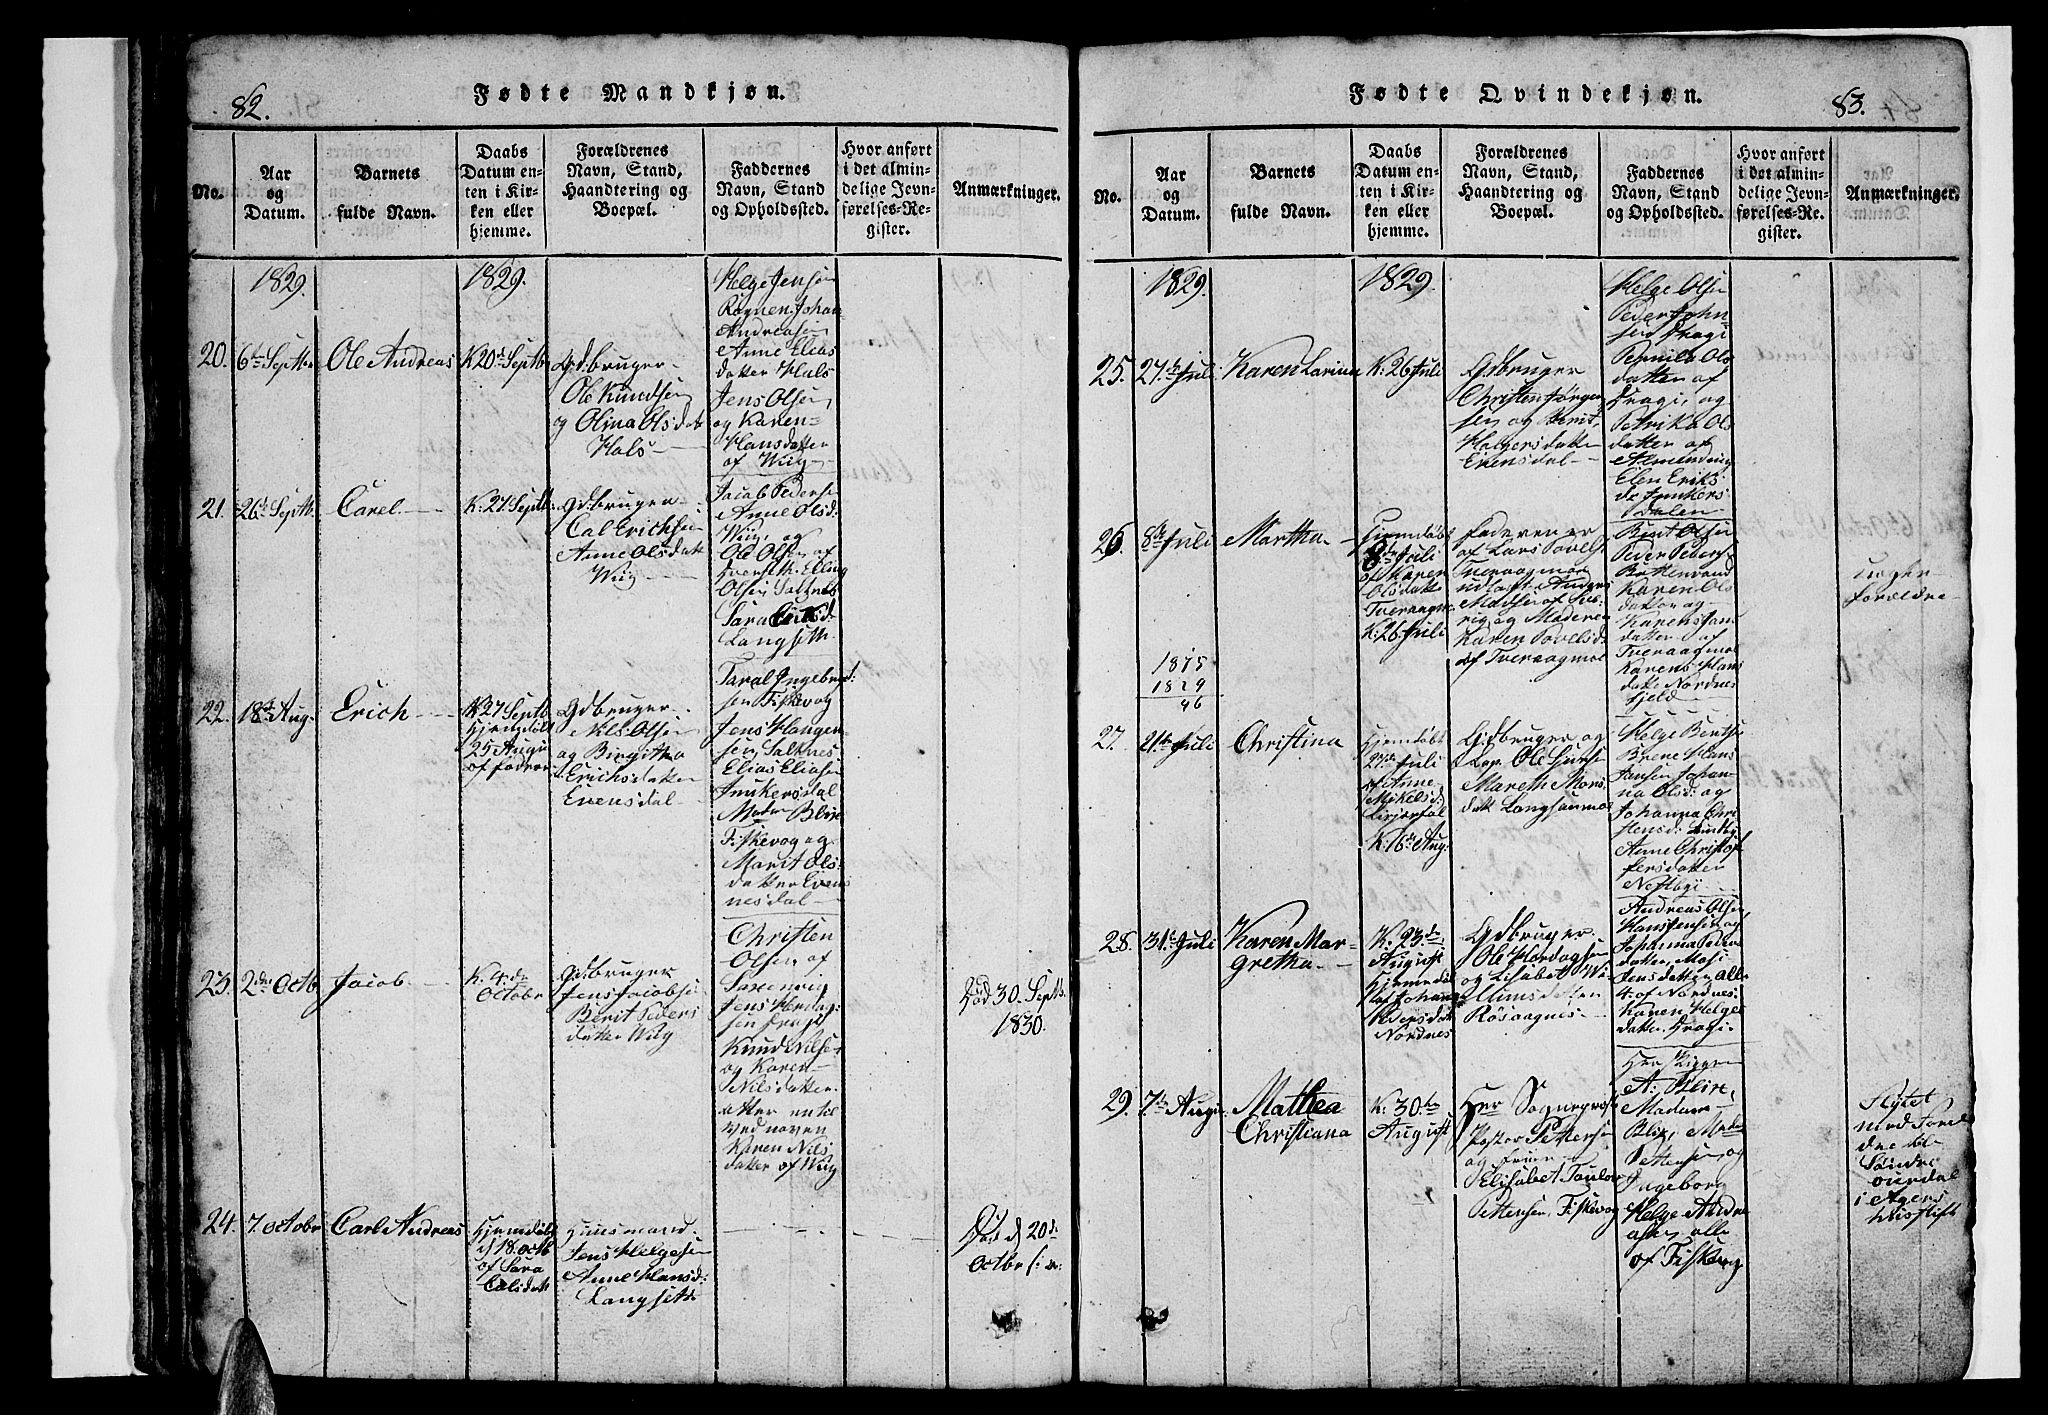 82.
Fødte Mandkjøn.
No.
Aar
og
Datum.
Barnets
fulde Navn.
Daabs
Datum en-
ten i Kir-
ken eller
hjemme.
Forældrenes
Navn, Stand,
Haandtering og
Boepæl.
Faddernes
Navn, Stand
og Opholdssted.
Hvor anført
i det almin-
delige Jevn-
førelses-Re-
gister.
Anmærkninger.
1829.
1829.
20.
6te Septbr
Ole Andreas
K 20de Septbr
Gdbruger
Ole Knudsen
og Olina Olsdatt
Hals
Helge Jensen
Rognen Johan
Andreasen
Anne Elias
datter Hals
Jens Olsen
og Karen
Hansdatter
af Wiig
21.
26de Septb.
Carel
K. 27. Septb.
Gdbruger
Cal Erichsen
Anne Olsdatt
Wiig
Jacob Pedersen
Anne Olsd:
Wiig, og
Ole Olsen af
Olsen Saltnes
Sara
Langseth
22.
18de Aug.
Erich
K 27 Septb
Hjemdøbt
25 Augu
af Fader
Gdbruger
Nils Olsen
og Birgitha
Erichsdatter
Evensdal
Taral Ingebrigt
sen Fiskevog
Jens Hangen
sen, Saltnes
Elias Eliasen
Junkersdal
Madm Blix
Fiskevog og
Marit Ols:
datter Evens
nesdal
23.
2den Octb
Jacob
K. 4de
Octobr
Gdbruger
Jens Jacobsen
Berit Peders
datter Wiig
Christen
Olsen af
Saxenvig
Jens Hardag-
sen Dragi
Knud Nilsen
og Karen
Nilsdatter
atter en til
ved naven
Karen Nils
datter af Wiig
Død 30. Septb.
1830.
24.
7. Octobr
Carl Andreas
Hjemdøbt
d 18. Octb
af Sara
Calsdatt
Huusmand
Jens Helgesen
Anne Hansd:
Langseth
Død d. 20de
Octbr s: a:
Fødte Qvindekjøn.
83.
No.
Aar
og
Datum.
Barnets
fulde Navn.
Daabs
Datum en-
ten i Kir-
ken eller
hjemme.
Forældrenes
Navn, Stand,
Haandtering og
Boepæl.
Faddernes
Navn, Stand
og Opholdssted.
Hvor anført
i det almin-
delige Jevn-
førelses-Re-
gister.
Anmærkninger.
1829.
1829.
25.
27de Juli
Karen Larina
K: 26 Juli
Gdbruger
Christen Jørgen
sen og Berit
Holgersdatter
Evensdal
Helge Olsen
Peder John
sen Dragi
Pernila Ols
datter af
Dragi, og
Petrika Ols
datter af
Almending
Elen Eriks
dr Junkers
Dalen
26.
8de Juli
Martha
Hjemdøbt
8de Juli
af Karen
Olsdatter
Tveraagmo
K: 26 Juli
Faderen er
af Lars Povels
Tveraagmoe
udlagt: Anders
Madsen af
og Moderen
Karen Povelsd:
af Tveraagmoe
Berit Olsen
Peder Peders
Bottenvand
Karen Ols
datter og
Karen Jon
datter af
Tveraagmoe
Karen Hans
datter Nordnes
fjeld
uægte
forældre
1875
1829
46
27.
21de Juli
Christina
Hjemdøbt
27de Juli
af Anne
Mikelsd:
K: 16de Aug.
Gdbruger og
Lap. Ole
Mareth Mons
datt Langsaanmoe
Helge Bertsen
Brene Hans
Jansen Johan-
na Olsd: og
Johanna Chri
stensd:
Anne Christof
fersdatter
Nestbyi
28.
31te Juli
Karen Mar-
gretha
K. 23de
August
Hjemmedø
bt af Johana
Pedersdatt
Nordnes
Gdbruger
Ole Hordagsen
og Lisabet Wi
llumsdatter
Røsaagnes
Andreas Olsen,
Hans Jensen og
Johanna Peder
datter, Mosi
Jensdatter, alle
4. af Nordnes:
Karen Helge
datter. Dragi
29.
7de Augu
Mathea
Christiana
K: 30te
August
Herr Sogneprest
Pastor Pettersen
og Fruen
Elisabet Toulow
Pettersen, Fiskevog
Herr
A: Blix,
Madam
Blix, Mada
Pettersen, og
Ingeborg
Helge Andre
asen, alle
af Fiskevog
Flytet
med Foræl
dre til
Søndre
ourdal
i Agers
huus stift